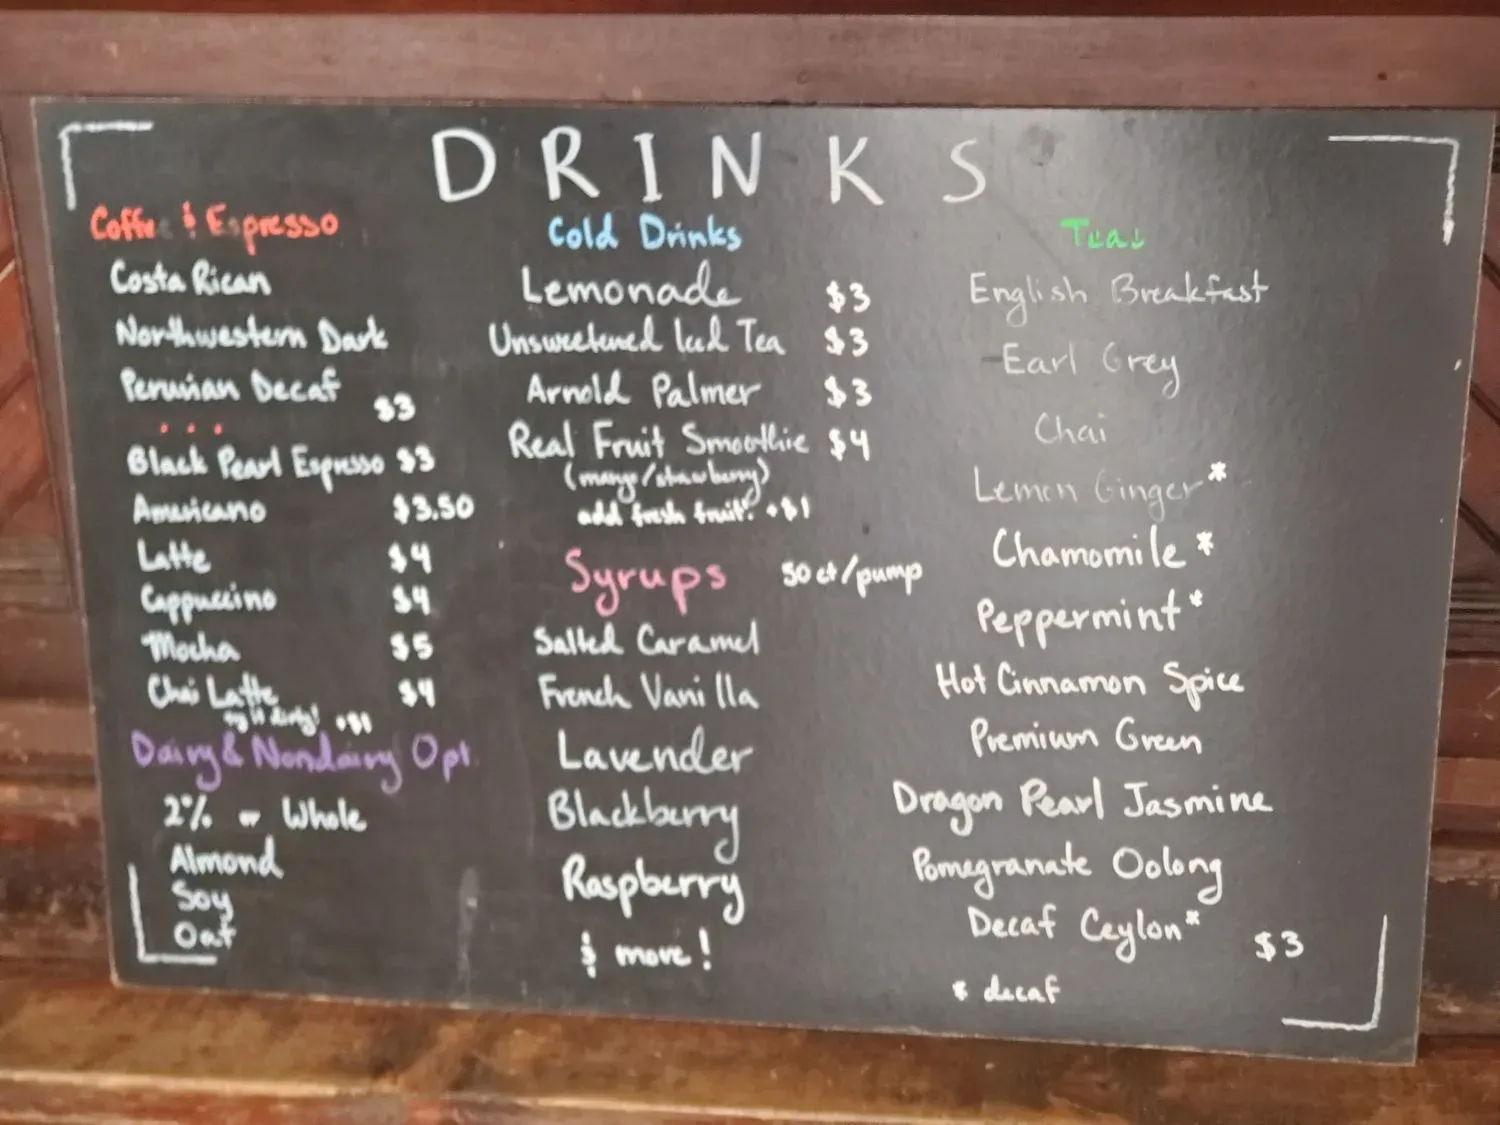 DRINKS
Coffee & Espresso
Costa Rican
Northwestern Dark
Peruvian Decaf
$3
Black Pearl Espresso $3
Americano $3.50
Latte $4
Cappuccino $4
Mocha $5
Chai Latte $4
try it dirty! +$1
Dairy & Nondairy Opt.
2% or Whole
Almond
Soy
Oat
Cold Drinks
Lemonade $3
Unsweetened Iced Tea $3
Arnold Palmer $3
Real Fruit Smoothie $4
(mango/strawberry)
add fresh fruit! +$1
Syrups 50 ct/pump
Salted Caramel
French Vanilla
Lavender
Blackberry
Raspberry
& more!
Teas
English Breakfast
Earl Grey
Chai
Lemon Ginger*
Chamomile*
Peppermint*
Hot Cinnamon Spice
Premium Green
Dragon Pearl Jasmine
Pomegranate Oolong
Decaf Ceylon*
$3
* decaf